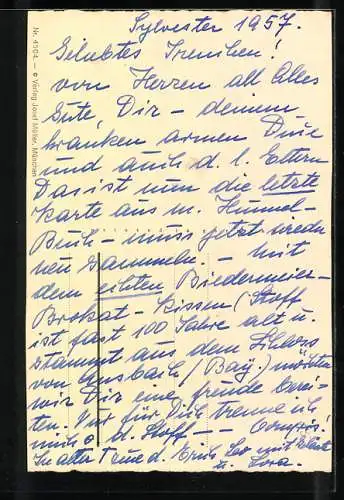 Sylvester 1957.
Geliebtes Irenchen!
von Herzen all Alles
Gute, Dir – deinem
kranken armen
und auch d. l. Eltern
Das ist nun die letzte
Karte aus m. Hummel-
Buch – muss jetzt wieder
neu sammeln. – Mit
dem echten Biedermeier-
Brokat-Kissen (Stoff
ist fast 100 Jahre alt u.
stammt aus dem Schloss
von Ansbach / Bay.) möchten
wir Dir eine Freude berei-
ten. Nur für Dich trenne ich
mich v. d. Stoff – – Compris!
In alter Treue d. Erich
u. Lora.
Nr. 4504 – © Verlag Josef Müller, München